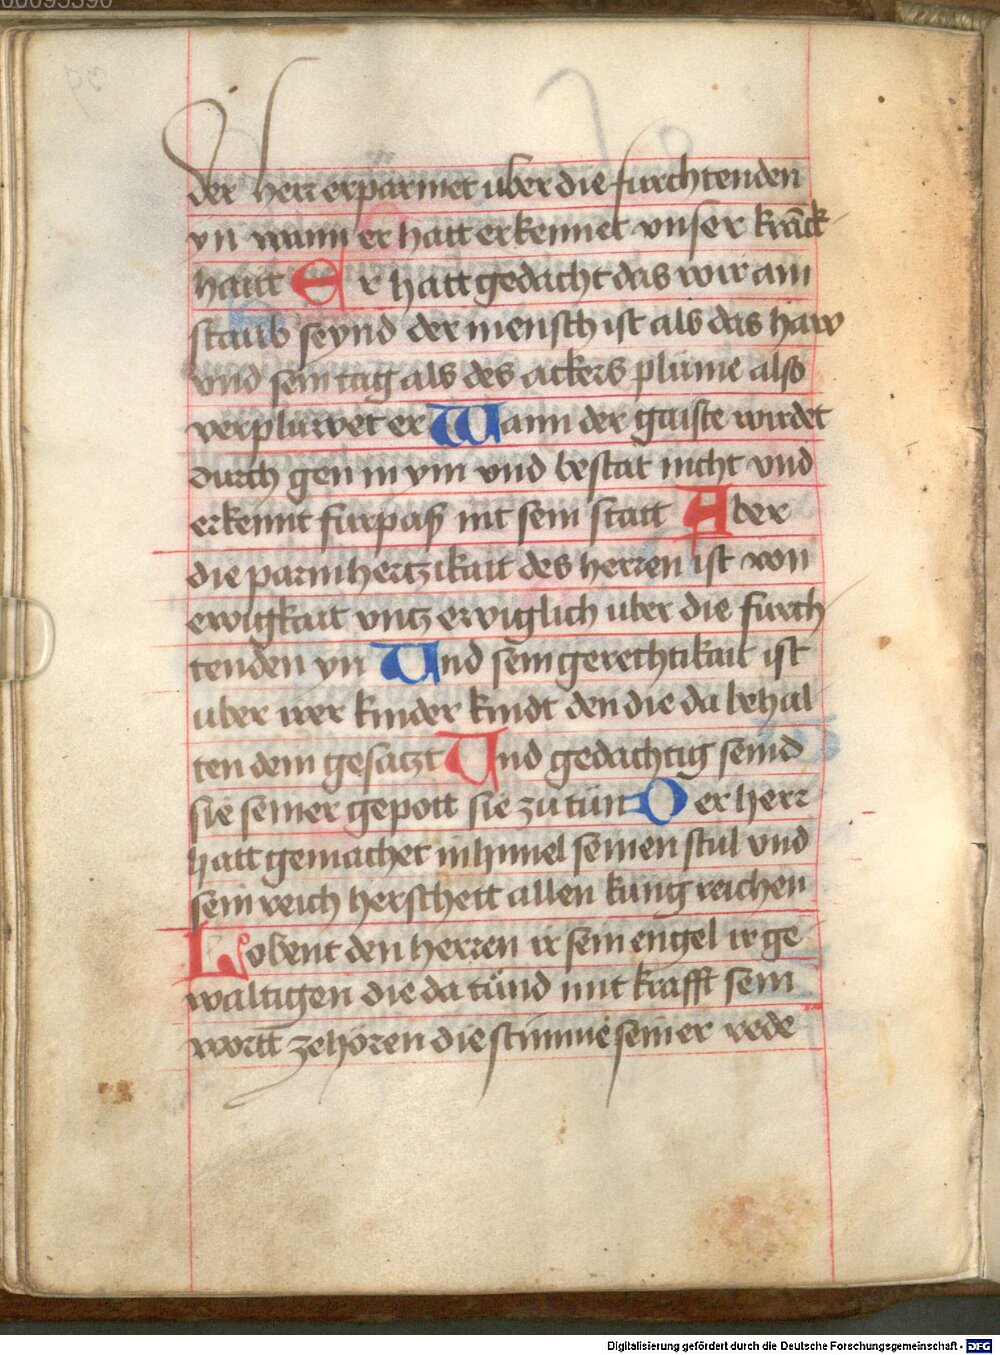 00095390
der herr erparmet uber die furchtenden
yn wann er hatt erkennet vnser kranck
haut Er hatt gedacht das wir am
staub seynd der mensch ist als das haw
vnd sein tag als des ackers plume also
verpluwet er Wann der gaiste wirdet
durch gen in ym vnd bestat nicht vnd
erkennt furpaß nit sein statt Aber
die parmhertzikait des herren ist von
ewigkait vntz ewiglich uber die furch
tenden yn Und sein gerechtikait ist
uber irer kinder kindt den die da behal
ten dem gesatzt Und gedachtig seind
sie seiner gepott sie zu tun Der herr
hatt gemachet in himel seinen stul vnd
sein reich herschett allen kunigreichen
Lobent den herren ir sein engel ir ge
waltigen die da tund mit krafft sein
wortt zehoren die stimme seiner rede
Digitalisierung gefördert durch die Deutsche Forschungsgemeinschaft - DFG